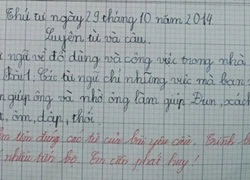 Thứ tư ngày 29 tháng 10 năm 2014
Luyện từ và câu.
ngữ về đồ dùng và công việc trong nhà
Bài 1: Các từ ngữ chỉ những việc mà bạn
giúp ông và nhờ ông làm giúp: Đun, xách
, ôm, dập, thổi.
tìm đúng các từ của bài yêu cầu. Trình b
nhiều tiến bộ. Em cần phát huy!